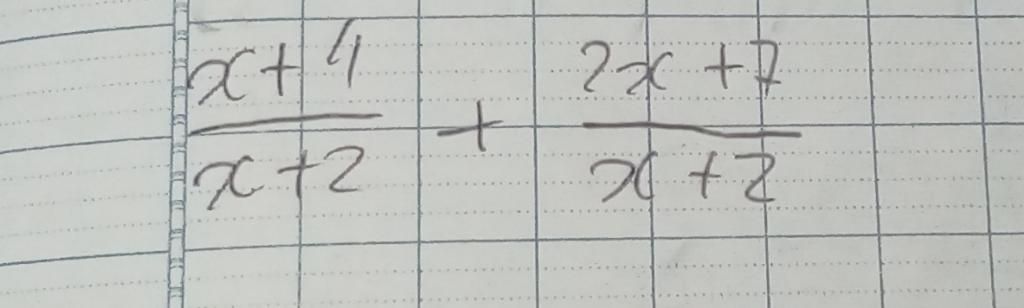 \frac{x+4}{x+2} + \frac{2x+7}{x+2}